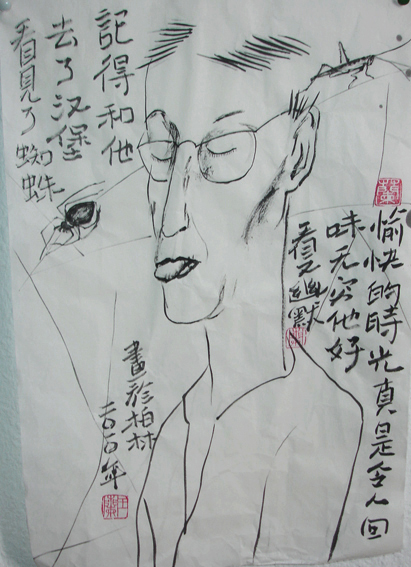 記得和他
去了汉堡
看見了蜘蛛
愉快的時光真是令人回
味无穷他好
看又幽默
畫於柏林
年